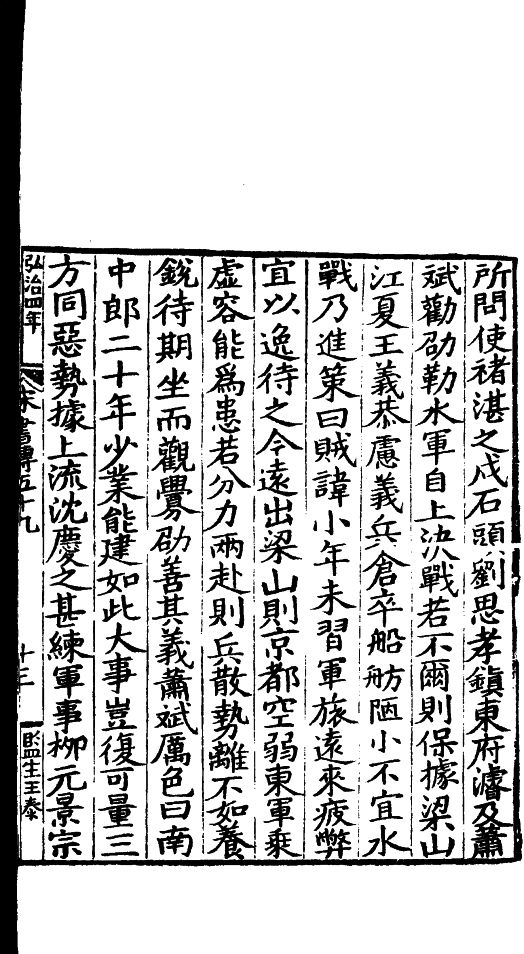 所問使褚湛之戍石頭劉思孝鎮東府濬及蕭
斌勸劭勒水軍自上決戰若不爾則保據梁山
江夏王義恭慮義兵倉卒船舫陋小不宜水
戰乃進策曰賊諱小年未習軍旅遠來疲弊
宜以逸待之今遠出梁山則京都空弱東軍乗
虛容能爲患若分力兩赴則兵散勢離不如養
銳待期坐而觀釁劭善其義蕭斌厲色曰南
中郎二十年少業能建如此大事豈復可量三
方同惡勢據上流沈慶之甚練軍事柳元景宗
弘治四年
宋書傳五十九
十三
監生王泰